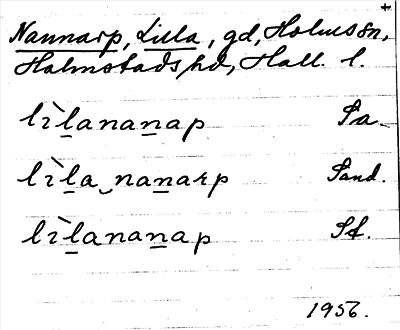 +
Nannarp, Lilla, gd, Holms sn,
Halmstads hd, Hall. l.
lìl̲anan̲ap Sa.
lìl̲a‿nan̲arp Sand.
lìl̲anan̲ap Sf.
1956.